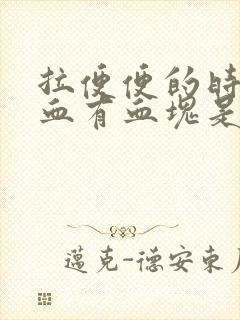 拉便便的时
血有血块是
邁克-德安東尼